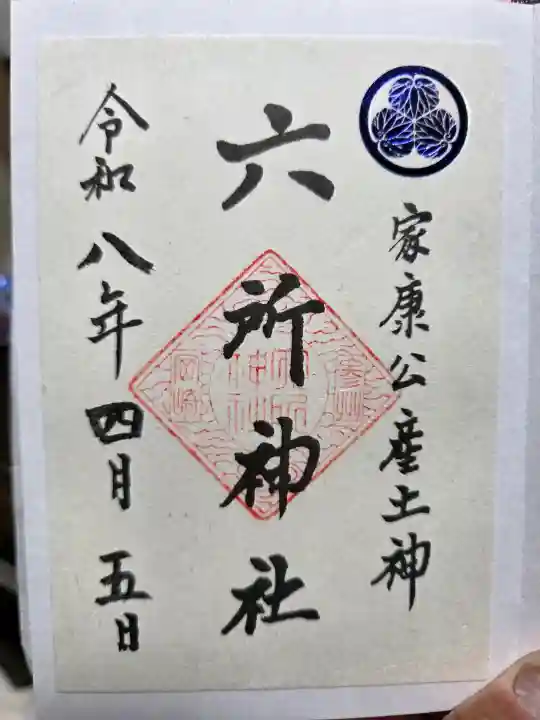 家康公産土神
六所神社
令和八年四月五日
参州
岡崎